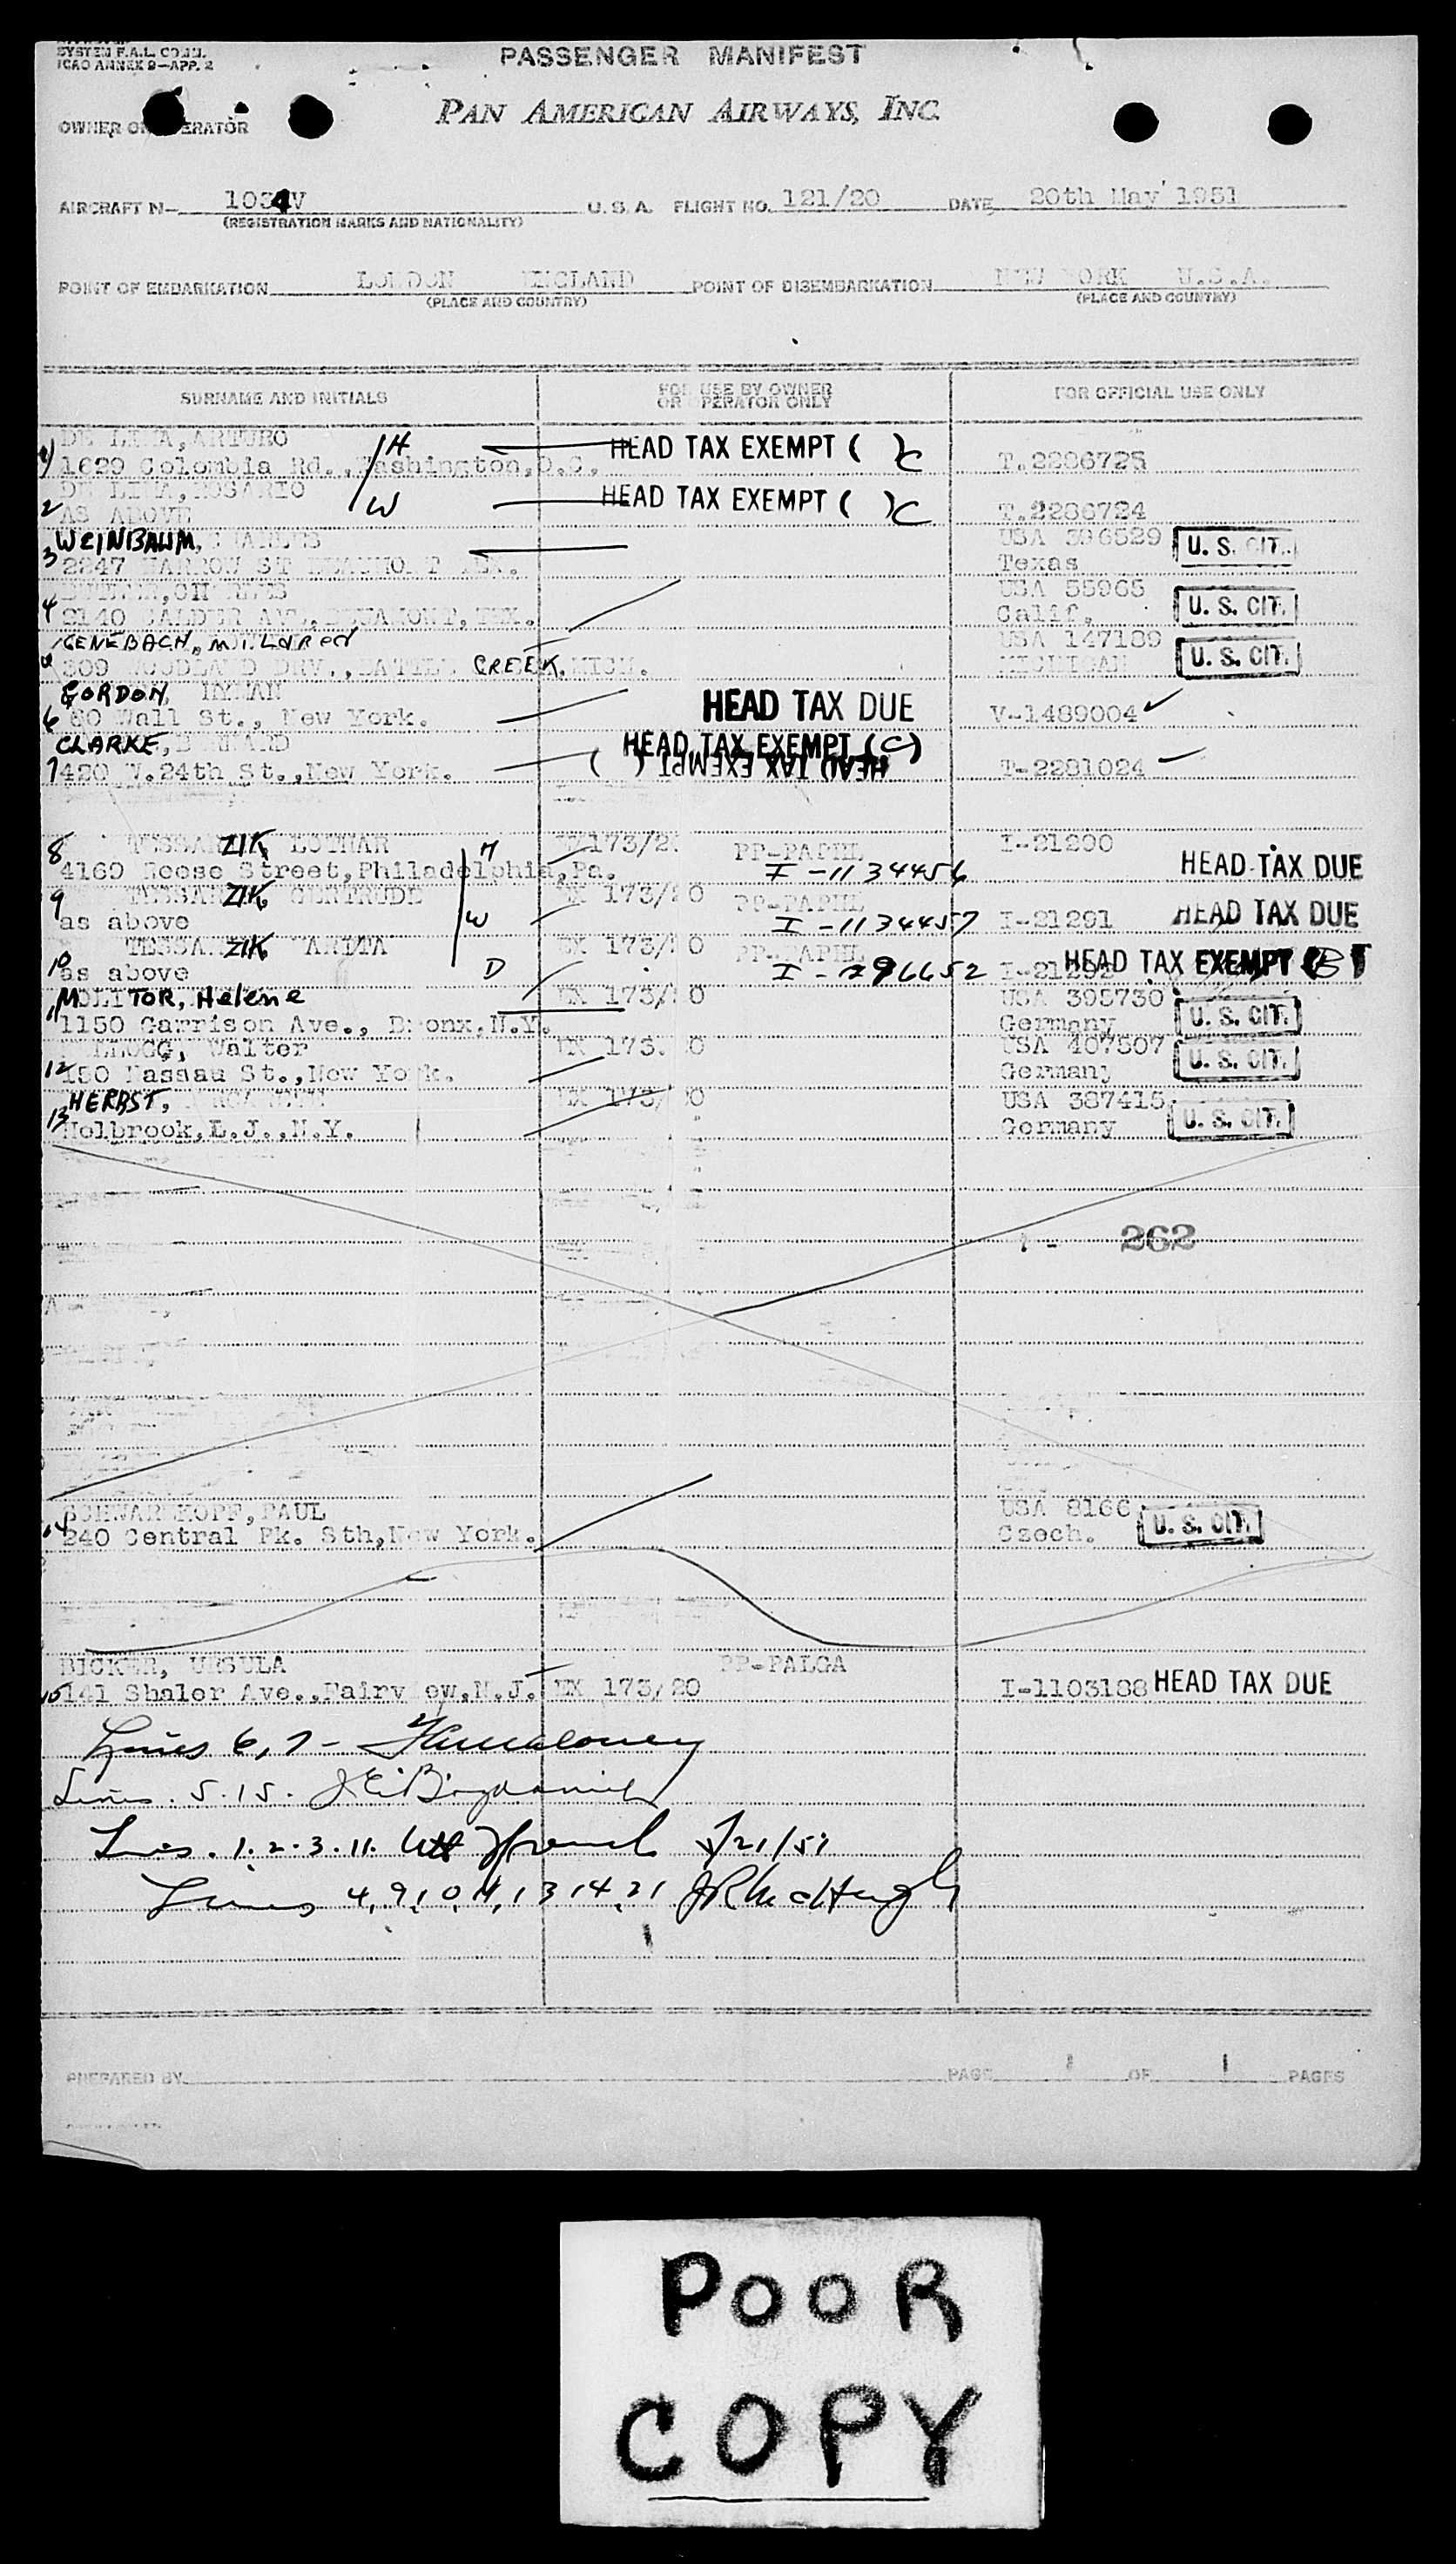 SYSTEM F.A.L. COMM.
ICAO ANNEX 9-APP. 2
PASSENGER MANIFEST
PAN AMERICAN AIRWAYS, INC.
OWNER OR OPERATOR
AIRCRAFT N- 1034V U. S. A. FLIGHT NO. 121/20 DATE 20th May 1951
(REGISTRATION MARKS AND NATIONALITY)
POINT OF EMBARKATION LONDON ENGLAND POINT OF DISEMBARKATION NEW YORK U.S.A.
(PLACE AND COUNTRY) (PLACE AND COUNTRY)
SURNAME AND INITIALS FOR USE BY OWNER OR OPERATOR ONLY FOR OFFICIAL USE ONLY
DE LIMA, ARTURO H HEAD TAX EXEMPT ( ) C
1 1629 Colombia Rd., Washington, D.C. T.2286725
DE LIMA, ROSARIO W HEAD TAX EXEMPT ( ) C
2 AS ABOVE T.2286724
WEINBAUM, CHARLES USA 396529 U. S. CIT.
3 2247 ST TEX. Texas
USA 55965 U. S. CIT.
4 2140 CALDER AVE, BEAUMONT, TEX. Calif.
MILDRED USA 147189 U. S. CIT.
309 WOODLAND DRV., BATTLE CREEK, MICH. MICHIGAN
GORDON, HYMAN HEAD TAX DUE
6 60 Wall St., New York. V-1489004
CLARKE, BERNARD HEAD TAX EXEMPT (C)
HEAD TAX EXEMPT ( )
7 420 W.24th St., New York. T-2281024
8 TESSARZIK, LOTHAR H 173/2 PP-PAPHL I-21290
4169 Reese Street, Philadelphia, Pa. I-1134456 HEAD TAX DUE
9 TESSARZIK, GERTRUDE EX 173/20 PP-PAPHL
as above W I-1134457 I-21291 HEAD TAX DUE
TESSARZIK EX 173/20 PP-PAPHL
10 as above D I-796652 HEAD TAX EXEMPT (B)
MOLITOR, Helene EX 173/20 USA 398730 U. S. CIT.
11 1150 Garrison Ave., Bronx, N.Y. Germany
KELLOGG, Walter EX 173/20 USA 407507 U. S. CIT.
12 150 Nassau St., New York. Germany
HERBST, EX 173/20 USA 387415 U. S. CIT.
13 Holbrook, L.I., N.Y. Germany
262
SCHWARZKOPF, PAUL USA 8166 U. S. CIT.
14 240 Central Pk. Sth, New York. Czech.
BICKER, URSULA PP-PALGA
15 141 Shaler Ave., Fairview, N.J. EX 173/20 I-1103188 HEAD TAX DUE
Lines 6, 7 -
Lines. 5. 15.
Lines. 1. 2. 3. 11. 5/21/51
Lines 4, 9, 10, 11, 13 14, 21 JR McHugh
PREPARED BY PAGE 1 OF 1 PAGES
POOR
COPY